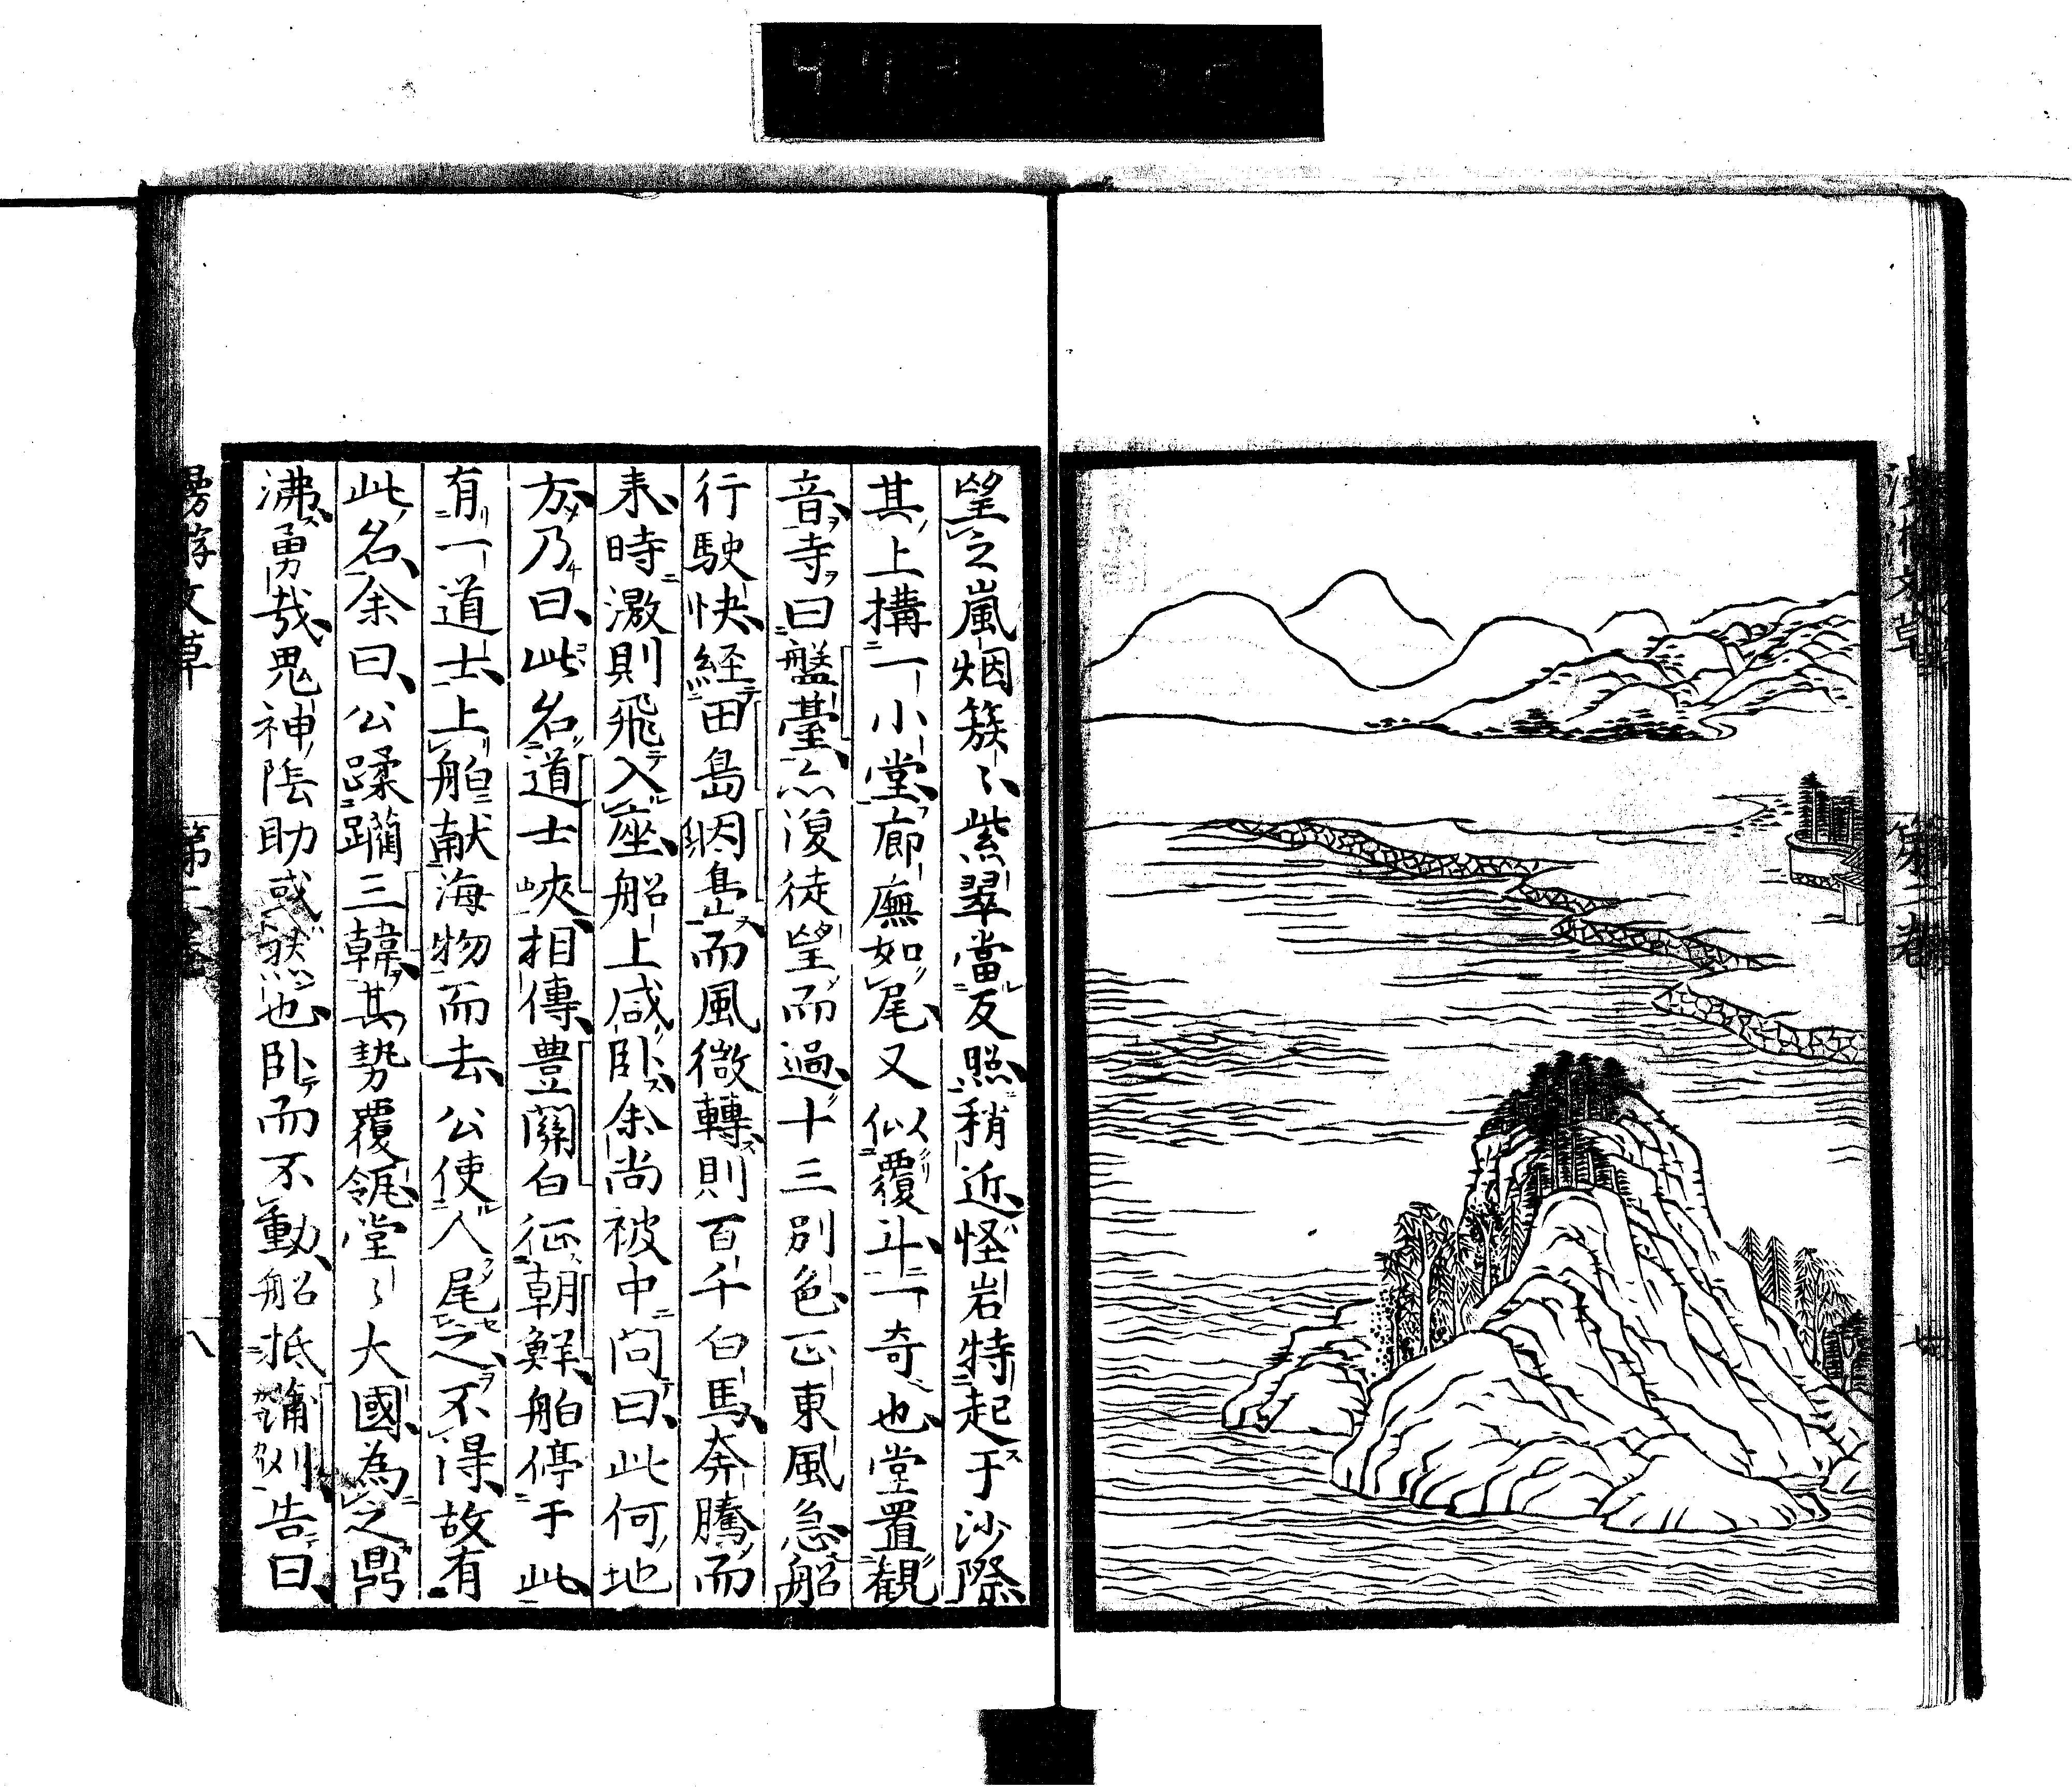 漫遊文草
第二卷
七
望之嵐烟簇〻紫翠當反照稍近怪岩特起于沙際
其上構一小堂廊廡如尾又似覆斗一奇也堂置觀
音寺曰盤臺亦復徒望而過十三別色正東風急船
行駛快經田島因島而風微轉則百千白馬奔騰而
来時激則飛入座船上咸臥余尚被中問曰此何地
方乃曰此名道士峽相傳豊關白征朝鮮船停于此
有一道士上船献海物而去公使人尾之不得故有
此名余曰公蹂躪三韓其勢覆瓴堂〻大國為之鼎
沸勇哉鬼神陰助或然也臥而不動船抵蒲刈告曰
漫游文草
第二卷
八